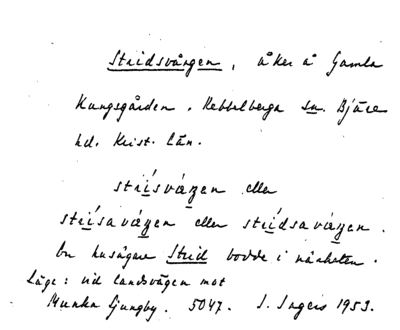 Stridsvången, åker å Gamla
Kungsgården. Rebbelberga sn. Bjäre
hd. Krist. län.
striˊsvæŋen eller
striˊsavæŋen eller striˊdsavæŋen.
En husägare Strid bodde i närheten.
Läge: vid landsvägen mot
Munka Ljungby. 5047. I. Ingers 1953.